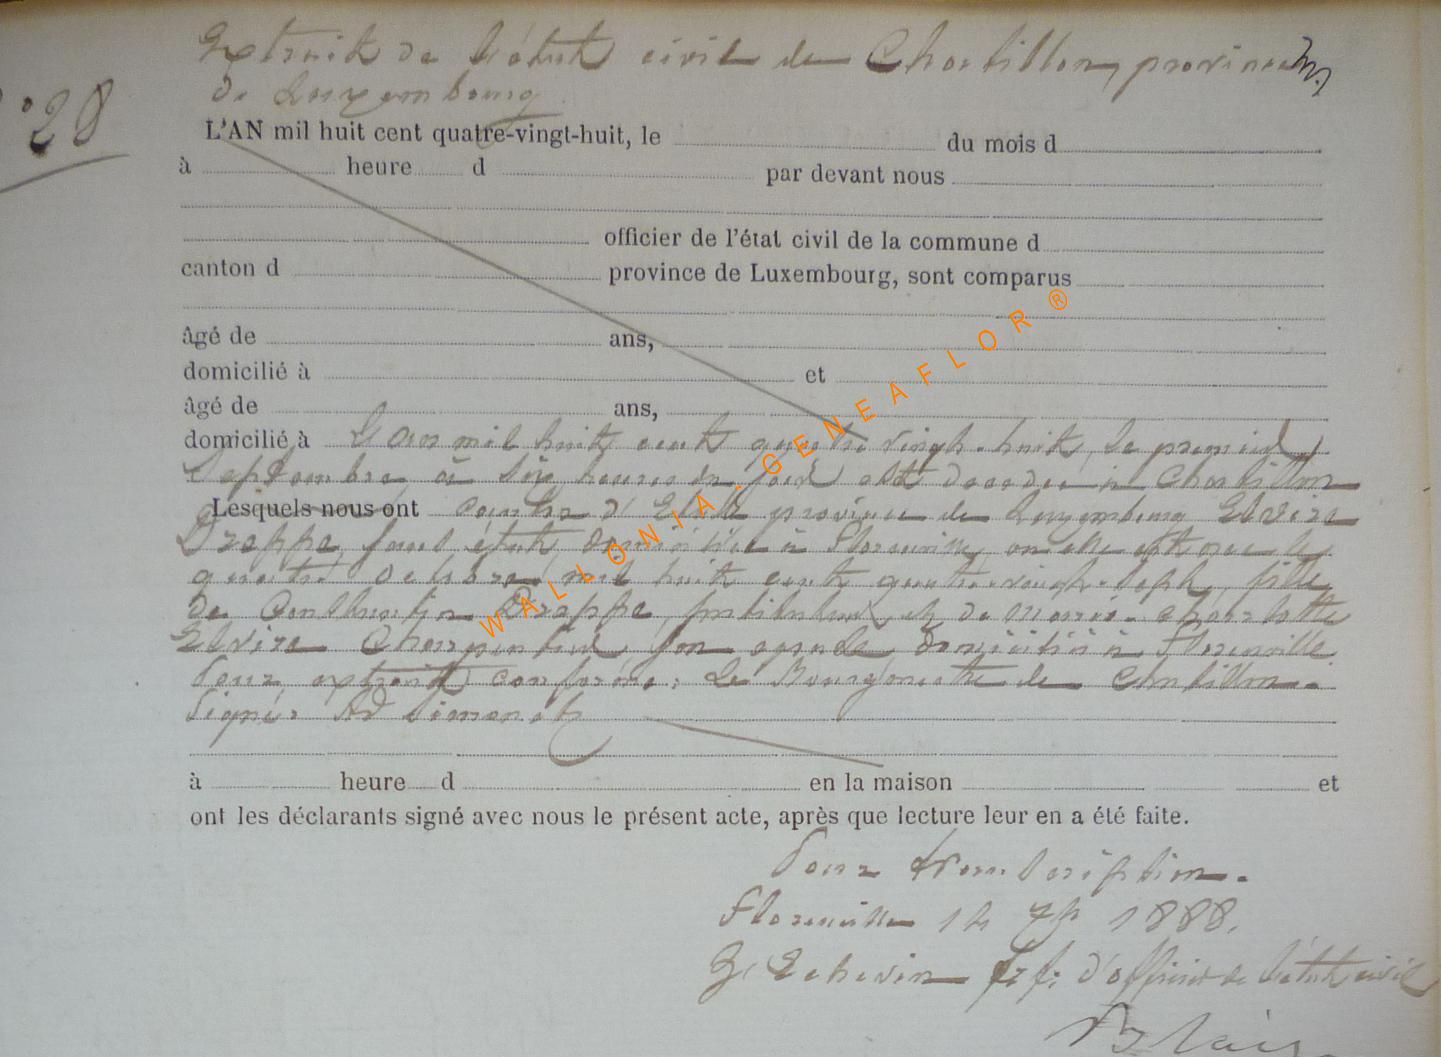 Extrait de l'état civil de Chatillon, province
de Luxembourg
N°28
L'AN mil huit cent quatre-vingt-huit, le du mois d
à heure d par devant nous
officier de l'état civil de la commune d
canton d province de Luxembourg, sont comparus
âgé de ans,
domicilié à et
âgé de ans,
domicilié à L'an mil huit cent quatre vingt-huit, le premier
Septembre, à six heures du jour est décédée à Chatillon
Lesquels nous ont canton d'Etalle province de Luxembourg Elvire
Drappe, sans état domiciliée à Florenville, où elle est née le
quatre octobre mil huit cent quatre-vingt-sept, fille
de Constantin Drappe, instituteur et de Marie-Charlotte
Elvire Charpentier son épouse domiciliés à Florenville
Pour extrait conforme: Le Bourgmestre de Chatillon.
Signé: Ad Simonet
à heure d en la maison et
ont les déclarants signé avec nous le présent acte, après que lecture leur en a été faite.
Pour transcription.
Florenville 14 7bre 1888.
L'Echevin ff. d'officier de l'état civil
WALLONIA-GENEAFLOR®